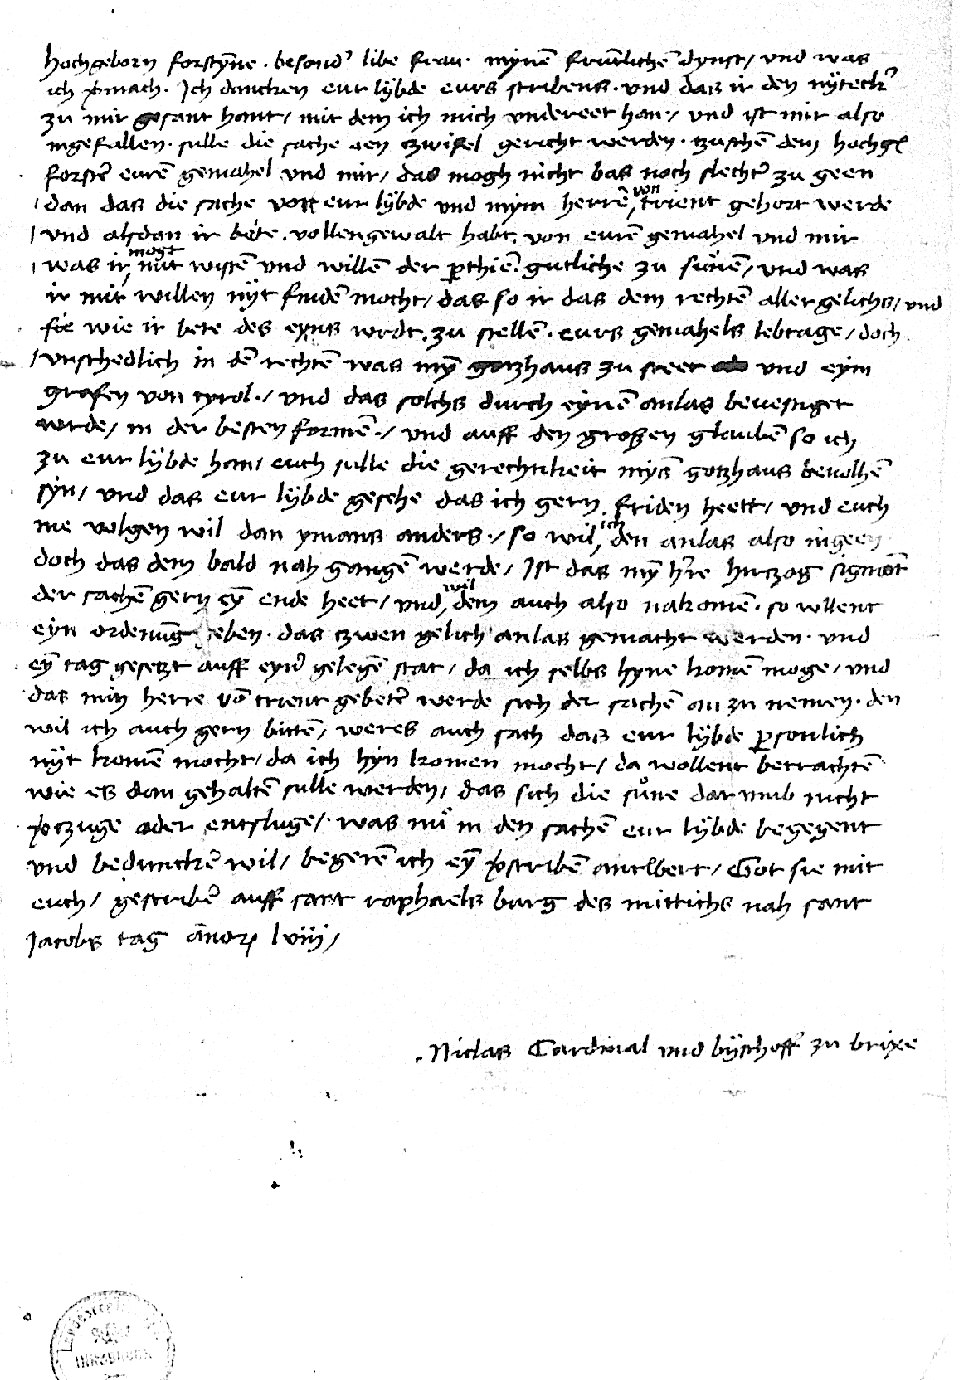 hochgeborn forstyñe · besond' libe frau · mynē frūtlichē dynst / und was
ich v'mach · Ich dancken eur lybde eurs scribens · und daß ir den nyteck'
zu mir gesant hant / mit dem ich mich undereet han / und ist mir also
ingefallen · sulle die sache den czwifel gericht werden · tzuschē dem hochgl
forstē eurē gemahel und mir / das mogh nicht bas noch slechter zu geen
/ dan das die sache von eur lybde und mym herrē von trient gehort werde
/ und alsdan ir bete · vollengewalt habt · von eurē gemahel und mir
/ was ir mogt mit wissē und willē der parthiē · gutliche zu sunē / und was
ir mit willen nyt findē mocht / das so ir das dem rechten aller gelichs / und
wie ir bete des eyns wrdt · zu stellen · eurs gemahels lebtage / doch
/ unschedlich in dē rechtē was myn gotzhaus zu steet und eym
grafen von tyrol · / und das solchs durch eynē anlas bevestiget
werde / in der besten formē · / und auff den großen glaubē so ich
zu eur lybde han / euch sulle die gerechtikeit myns gotzhaus bevolhē
syn / und das eur lybde gesehe das ich gern friden heett / und euch
me volgen wil dan ymans anders · / so wil ich den anlas also ingeen
doch das dem bald nah gangē werde / Ist das myn h're hirczog sigmōt
der sachē gern eyn ende heet / und wil dem auch also nakomē · so wllent
eyn ordenūg geben · das czwen gelich anlas gemacht werden · und
eyn tag gesetzt auff eyner gelegē stat / da ich selbs hyne komē moge / und
das min herre vō trient gebetē werde sich der sachē an zu nemen · den
wil ich auch gern bittē / weres auch sach daß eur lybde personlich
nyt komē mocht / da ich hyn komen mocht / da wollent betrachtē
wie es dan gehaltē sulle werden / das sich die sune dar umb nicht
v'czuge oder entsluge / was nu in den sachē eur lybde begegent
und beduncken wil / begerē ich eyn v'scribē antwert / Got sie mit
euch / gescribē auff sant raphaels burg des mittichs nah sant
Jacobs tag āno lviij /
Niclas Cardinal und byschoff zu brixe
INNSBRUCK